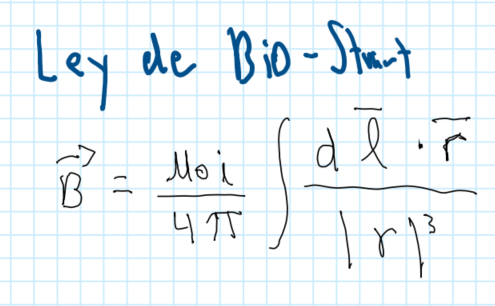 Ley de Bio-Stvart
\vec{B} = \frac{\mu_0 i}{4\pi} \int \frac{d\overline{l} \cdot \overline{r}}{|r|^3}